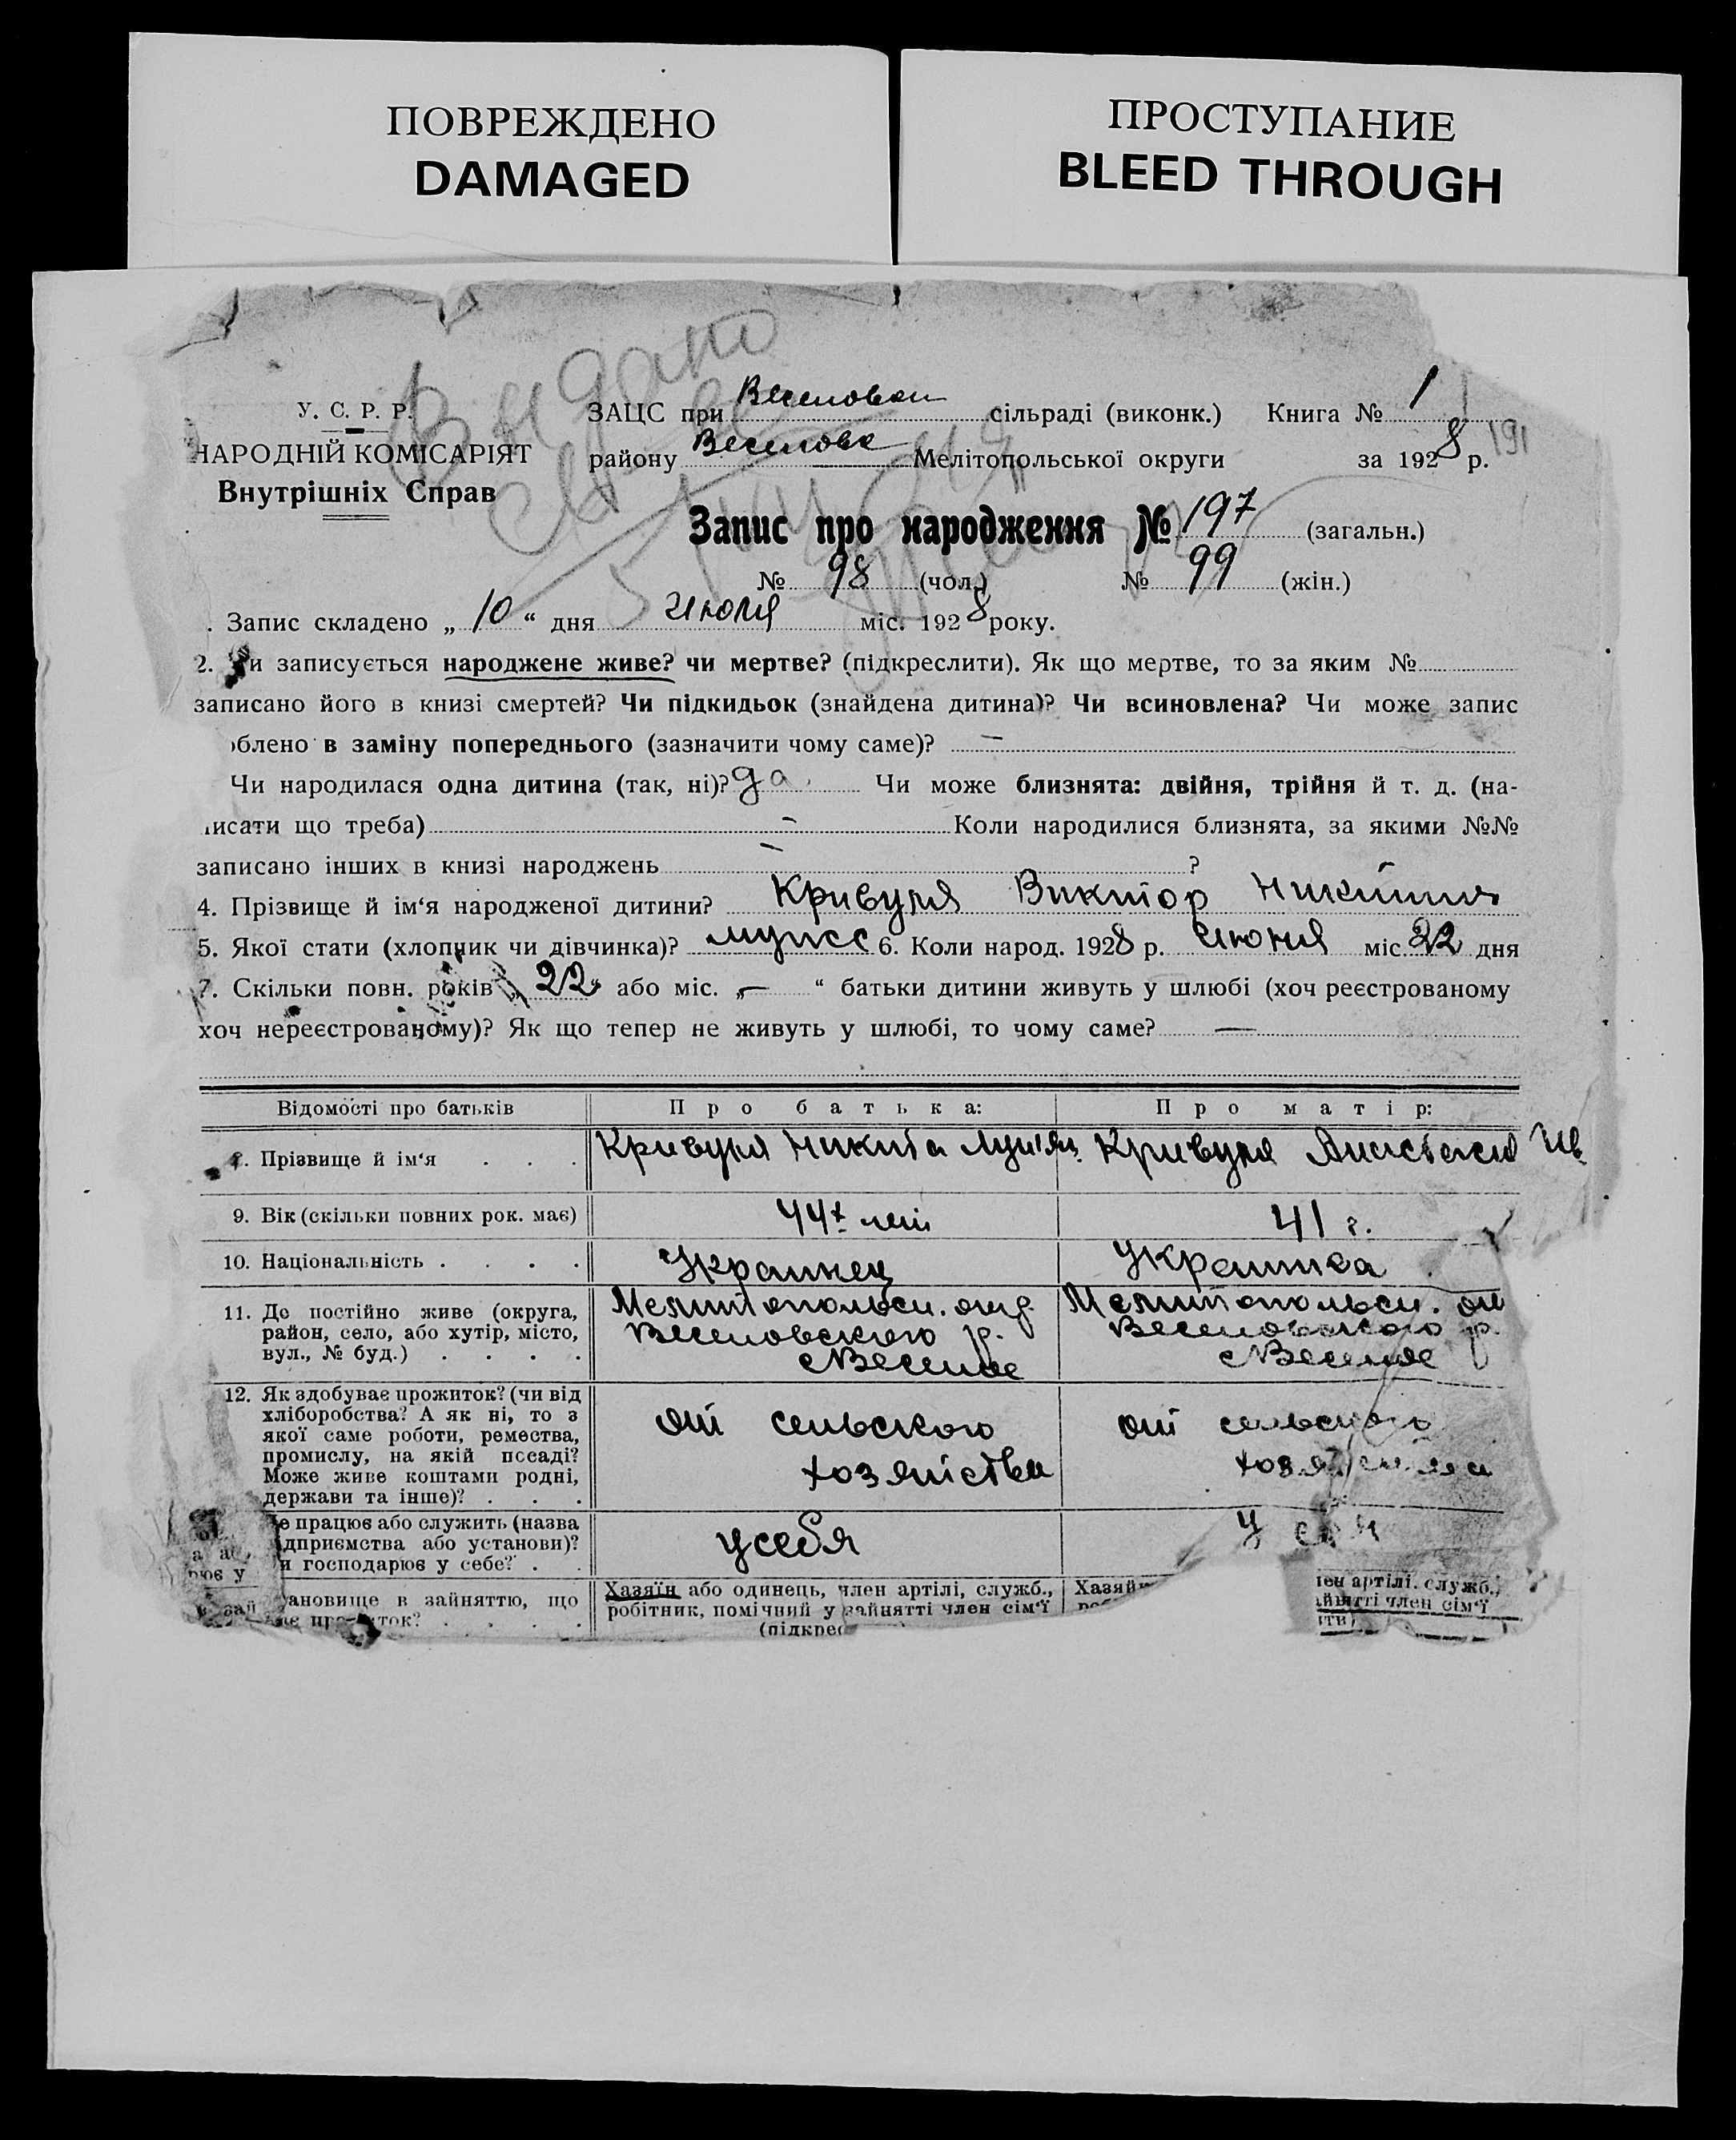 ПОВРЕЖДЕНО
DAMAGED
ПРОСТУПАНИЕ
BLEED THROUGH
Видано
У. С. Р. Р.
НАРОДНІЙ КОМІСАРІЯТ
Внутрішніх Справ
ЗАЦС при Веселовск сільраді (виконк.) Книга № 1
району Веселовск Мелітопольської округи за 1928 р. 191
Запис про народження № 197 (загальн.)
№ 98 (чол.) № 99 (жін.)
. Запис складено „ 10 “ дня Июля міс. 1928 року.
2. и записується народжене живе? чи мертве? (підкреслити). Як що мертве, то за яким №
записано його в книзі смертей? Чи підкидьок (знайдена дитина)? Чи всиновлена? Чи може запис
облено в заміну попереднього (зазначити чому саме)? —
Чи народилася одна дитина (так, ні)? да Чи може близнята: двійня, трійня й т. д. (на-
писати що треба) - Коли народилися близнята, за якими №№
записано інших в книзі народжень - ?
4. Прізвище й ім‘я народженої дитини? Кривуля Виктор Никитич
5. Якої стати (хлопчик чи дівчинка)? мужск 6. Коли народ. 1928 р. Июня міс. 22 дня
7. Скільки повн. років „ 22 “ або міс. „ — “ батьки дитини живуть у шлюбі (хоч реєстрованому
хоч нереєстрованому)? Як що тепер не живуть у шлюбі, то чому саме? —
Відомості про батьків Про батька: Про матір:
8. Прізвище й ім‘я . . . Кривуля Никита Лукян. Кривуля Анастасия Ив
9. Вік (скільки повних рок. має) 44 лет 41 г.
10. Національність . . . . Украинец Украинка
11. Де постійно живе (округа, район, село, або хутір, місто, вул., № буд.) . . . .
Мелитопольск. окр.
Веселовского р.
с Веселое
Мелитопольск. ок
Веселовского р.
с Веселое
12. Як здобуває прожиток? (чи від хліборобства? А як ні, то з якої саме роботи, ремества, промислу, на якій посаді? Може живе коштами родні, держави та інше)? . . .
от сельского
хозяйства
от сельского
хозяйства
е працює або служить (назва
ідприємства або установи)?
и господарює у себе? . .
у себя
у себя
ановище в зайняттю, що
ток? . . . .
Хазяїн або одинець, член артілі, служб.,
робітник, помічний у зайнятті член сім‘ї
(підкрес
Хазяїн
лен артілі. служб.,
айнятті член сім‘ї